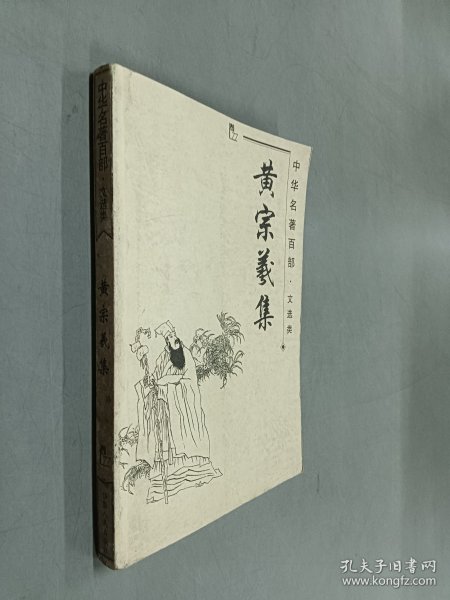 黄宗羲集
中华名著百部·文选类
中华名著百部·文选类
黄宗羲集
孔夫子旧书网
www.kongfz.com